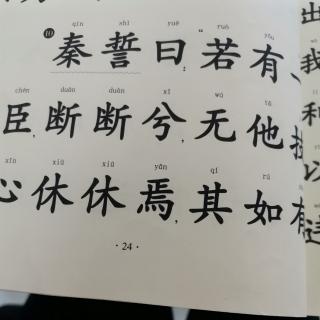 qín shì yuē ruò yǒu
⑩秦誓曰:“若有
chén duàn duàn xī wú tā
臣,断断兮,无他
xīn xiū xiū yān qí rú
心休休焉,其如有
· 24 ·
出
我
和
以